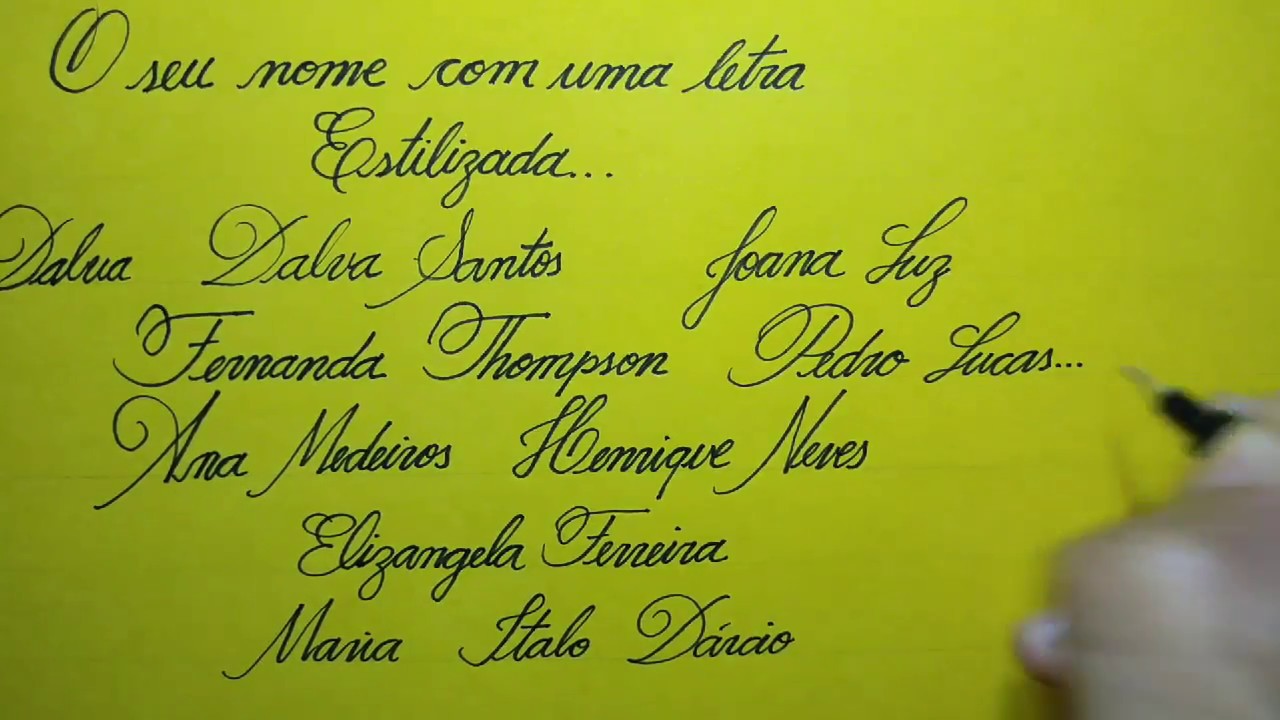 O seu nome com uma letra
Estilizada...
Dalva Dalva Santos Joana Luz
Fernanda Thompson Pedro Lucas...
Ana Medeiros Henrique Neves
Elizangela Ferreira
Maria Italo Dárcio